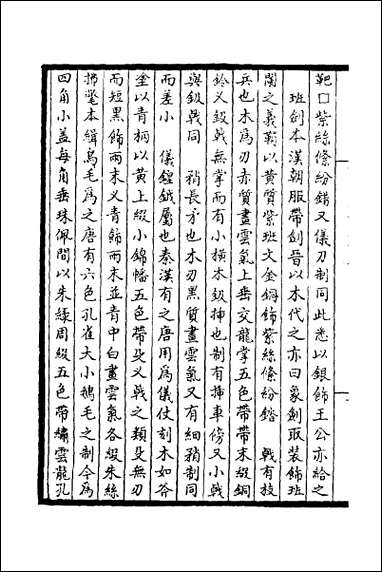 靶囗紫絲絛紛錯又儀刀制同此悉以銀飾王公亦給之
班劍本漢朝服帶劍晋以木代之亦曰象劍取裝飾班
闌之義鞘以黃質紫班文金銅飾紫絲絛紛錯　戟有枝
兵也木爲刃赤質畫雲氣上垂交龍掌五色帶帶末綴銅
鈴又鈒戟無掌而有小橫木鈒揷也制有揷車傍又小戟
與鈒戟同　矟長矛也木刃黑質畫雲氣又有細矟制同
而差小　儀鍠鉞屬也秦漢有之唐用爲儀仗刻木如斧
塗以青柄以黃上綴小錦幡五色帶殳叉戟之類殳無刃
而短黑飾兩末叉青飾兩末並青中白畫雲氣各綴朱絲
拂氅本緝鳥毛爲之唐有六色孔雀大小鵝毛之制今爲
四角小蓋每角垂珠佩間以朱縷周綴五色帶繡雲龍孔